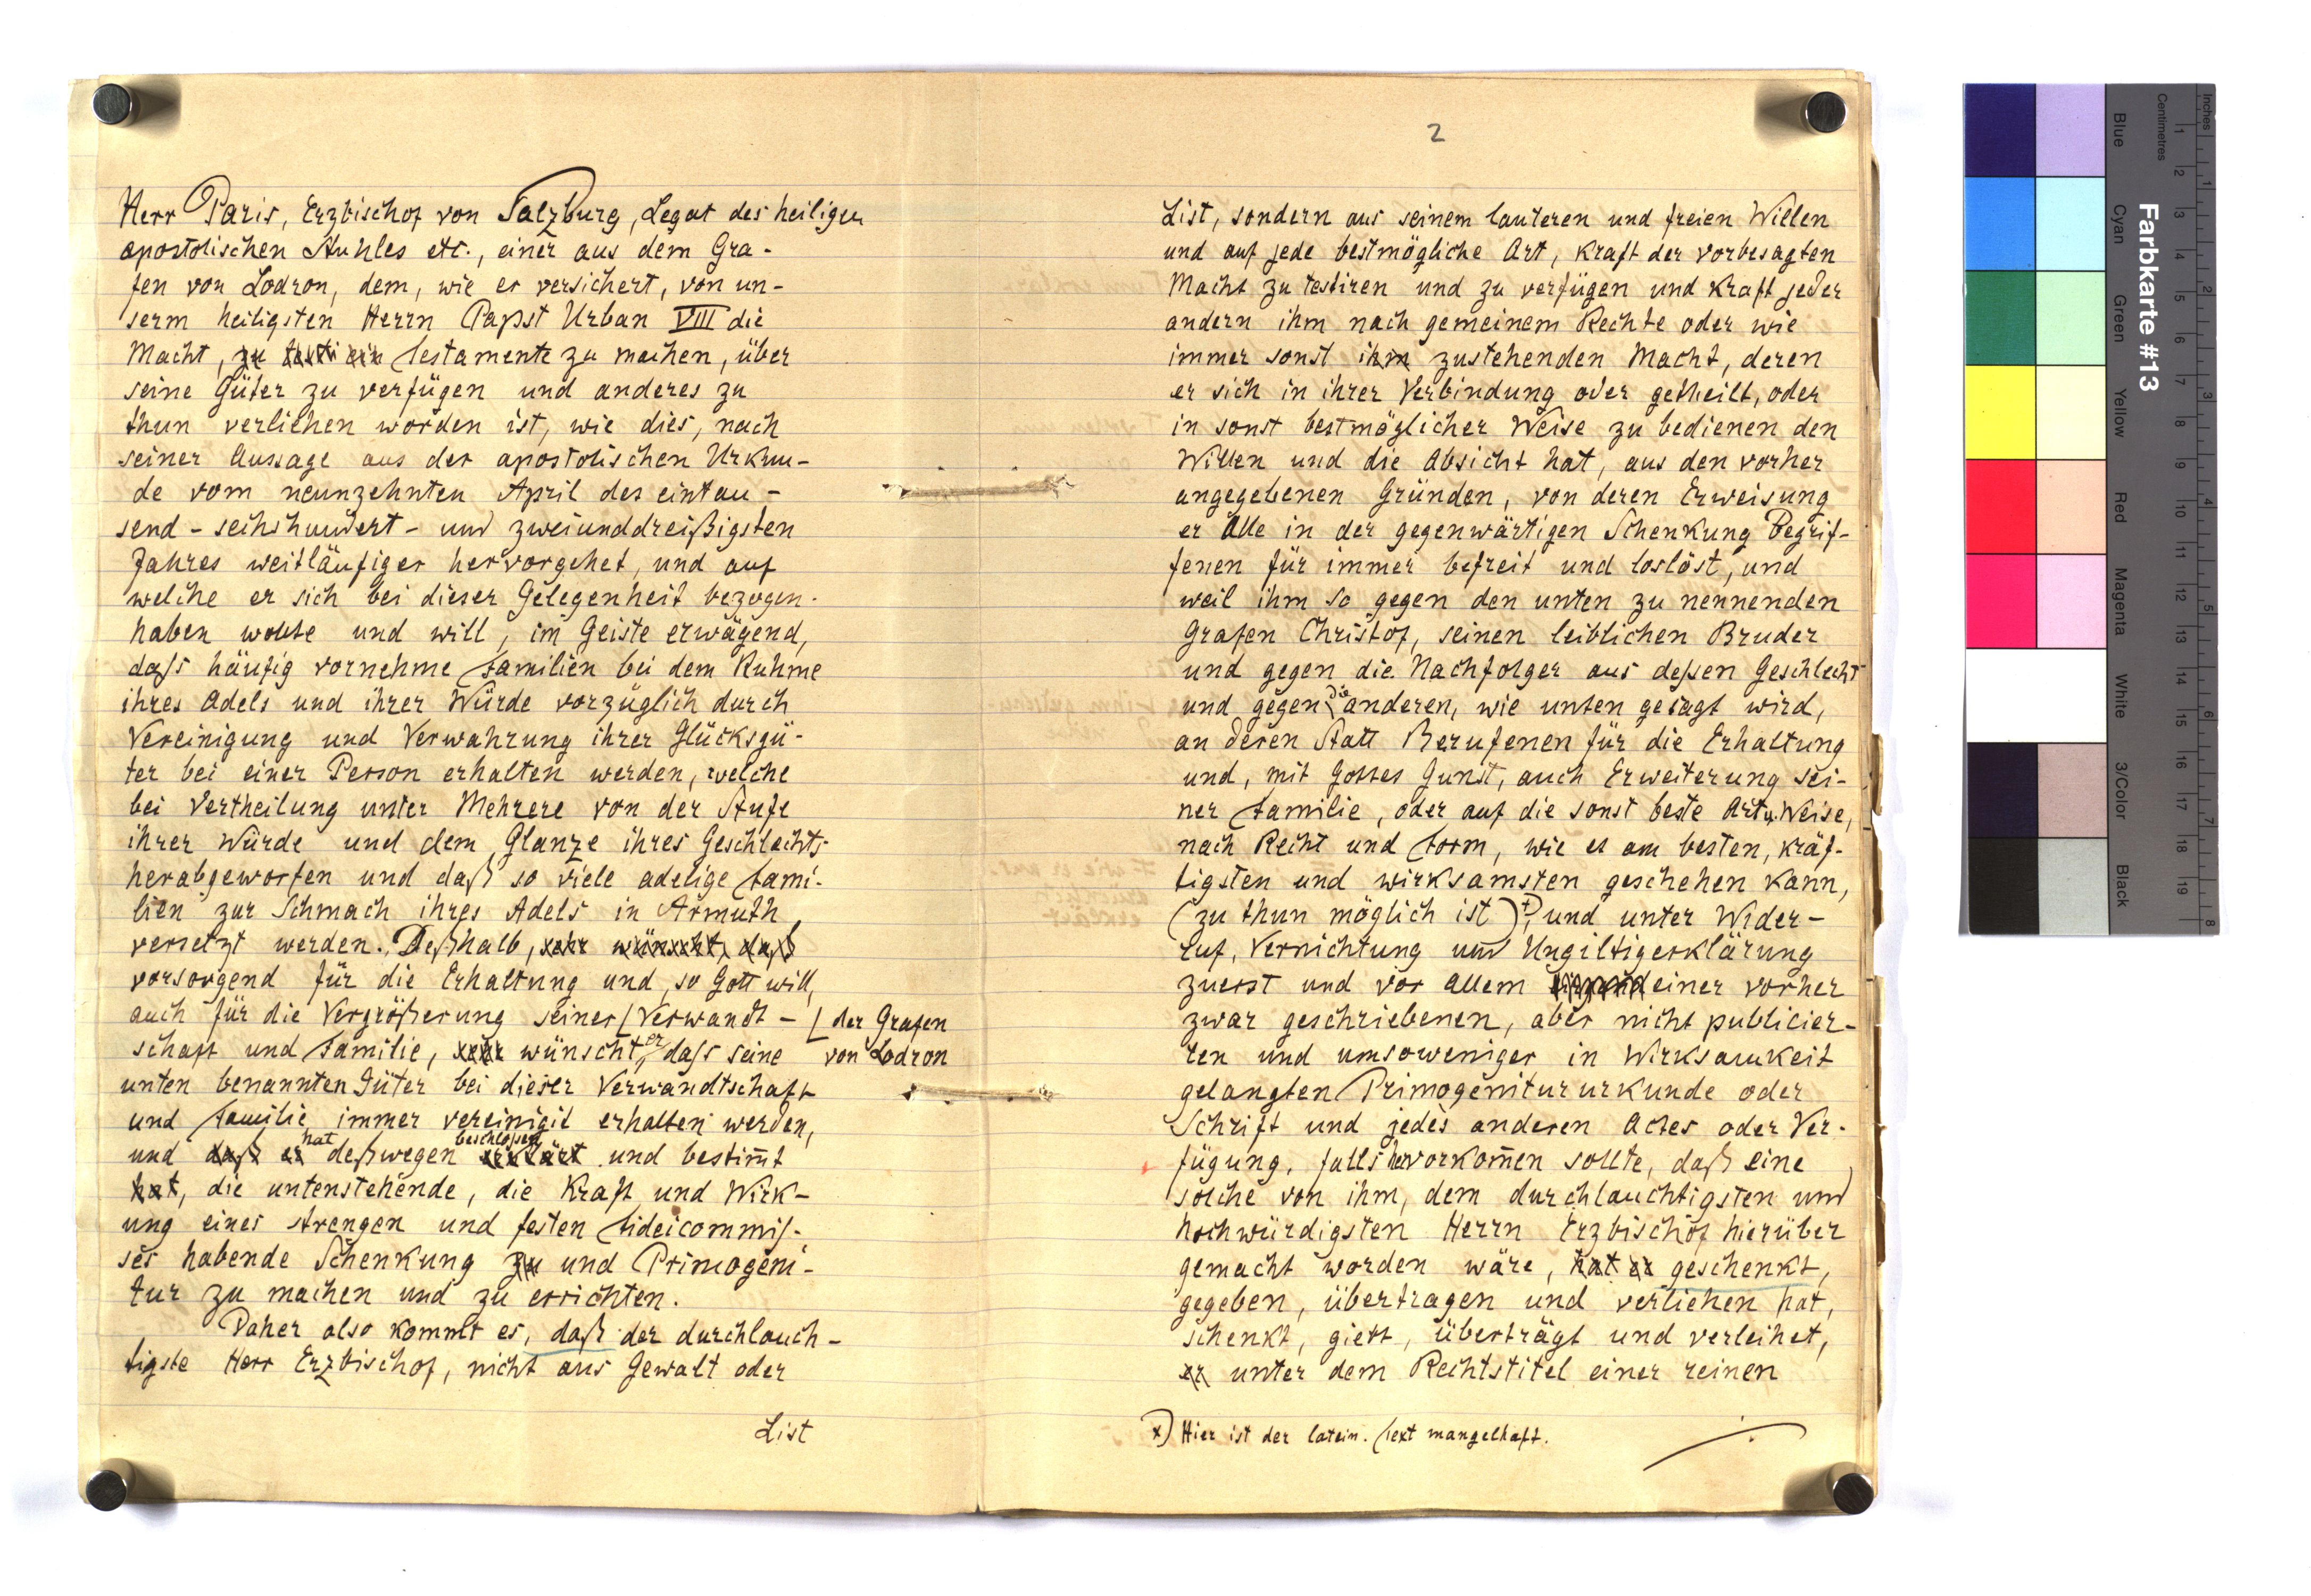 Herr Paris, Erzbischof von Salzburg, Legat des heiligen
apostolischen Stuhles etc., einer aus dem Gra-
fen von Lodron, dem, wie er versichert, von un-
serm heiligsten Herrn Papst Urban VIII die
Macht, zu testi ein Testamente zu machen, über
seine Güter zu verfügen und anderes zu
thun verliehen worden ist, wie dies, nach
seiner Aussage aus der apostolischen Urkun-
de vom neunzehnten April des eintau-
send-sechshundert- und zweiunddreißigsten
Jahres weitläufiger hervorgehet, und auf
welche er sich bei dieser Gelegenheit bezogen
haben wollte und will, im Geiste erwägend,
daß häufig vornehme Familien bei dem Ruhme
ihres Adels und ihrer Würde vorzüglich durch
Vereinigung und Verwahrung ihrer Glücksgü-
ter bei einer Person erhalten werden, welche
bei Vertheilung unter Mehrere von der Stufe
ihrer Würde und dem Glanze ihres Geschlechts
herabgeworfen und daß so viele adelige Fami-
lien zur Schmach ihres Adels in Armuth
versetzt werden. Deßhalb, sehr wünscht, daß
vorsorgend für die Erhaltung und, so Gott will,
auch für die Vergrößerung seiner Verwandt- der Grafen
schaft und Familie, sehr wünscht er, daß seine von Lodron
unten benannten Güter bei dieser Verwandtschaft
und Familie immer vereinigt erhalten werden,
hat beschloßen
und daß er deßwegen erklärt und bestim̄t
hat, die untenstehende, die Kraft und Wirk-
ung eines strengen und festen Fideicommis-
ses habende Schenkung zu und Primogeni-
tur zu machen und zu errichten.
Daher also kommt es, daß der durchlauch-
tigste Herr Erzbischof, nicht aus Gewalt oder
List
2
List, sondern aus seinem lauteren und freien Willen
und auf jede bestmögliche Art, kraft der vorbesagten
Macht zu testiren und zu verfügen und kraft jeder
andern ihm nach gemeinem Rechte oder wie
immer sonst ihm zustehenden Macht, deren
er sich in ihrer Verbindung oder getheilt, oder
in sonst bestmöglicher Weise zu bedienen den
Willen und die Absicht hat, aus den vorher
angegebenen Gründen, von deren Erweisung
er Alle in der gegenwärtigen Schenkung Begrif-
fenen für immer befreit und loslöst, und
weil ihm so gegen den unten zu nennenden
Grafen Christof, seinen leiblichen Bruder
und gegen die Nachfolger aus deßen Geschlecht
und gegen die anderen, wie unten gesagt wird,
an deren Statt Berufenen für die Erhaltung
und, mit Gottes Gunst, auch Erweiterung sei-
ner Familie, oder auf die sonst beste Art u. Weise,
nach Recht und Form, wie es am besten, kräf-
tigsten und wirksamsten geschehen kann,
(zu thun möglich ist)+), und unter Wider-
ruf, Vernichtung und Ungiltigerklärung
zuerst und vor Allem einer vorher
zwar geschriebenen, aber nicht publicier-
ten und umsoweniger in Wirksamkeit
gelangten Primogenitururkunde oder
Schrift und jedes anderen Actes oder Ver-
fügung, falls hervorkom̄en sollte, daß eine
solche von ihm, dem durchlauchtigsten und
hochwürdigsten Herrn Erzbischof hierüber
gemacht worden wäre, hat er geschenkt,
gegeben, übertragen und verliehen hat,
schenkt, giebt, überträgt und verleihet,
er unter dem Rechtstitel einer reinen
+) Hier ist der latein. Text mangelhaft.
Farbkarte #13
Inches
Centimetres
Blue
Cyan
Green
Yellow
Red
Magenta
White
3/Color
Black
1 2 3 4 5 6 7 8 9 10 11 12 13 14 15 16 17 18 19
1 2 3 4 5 6 7 8